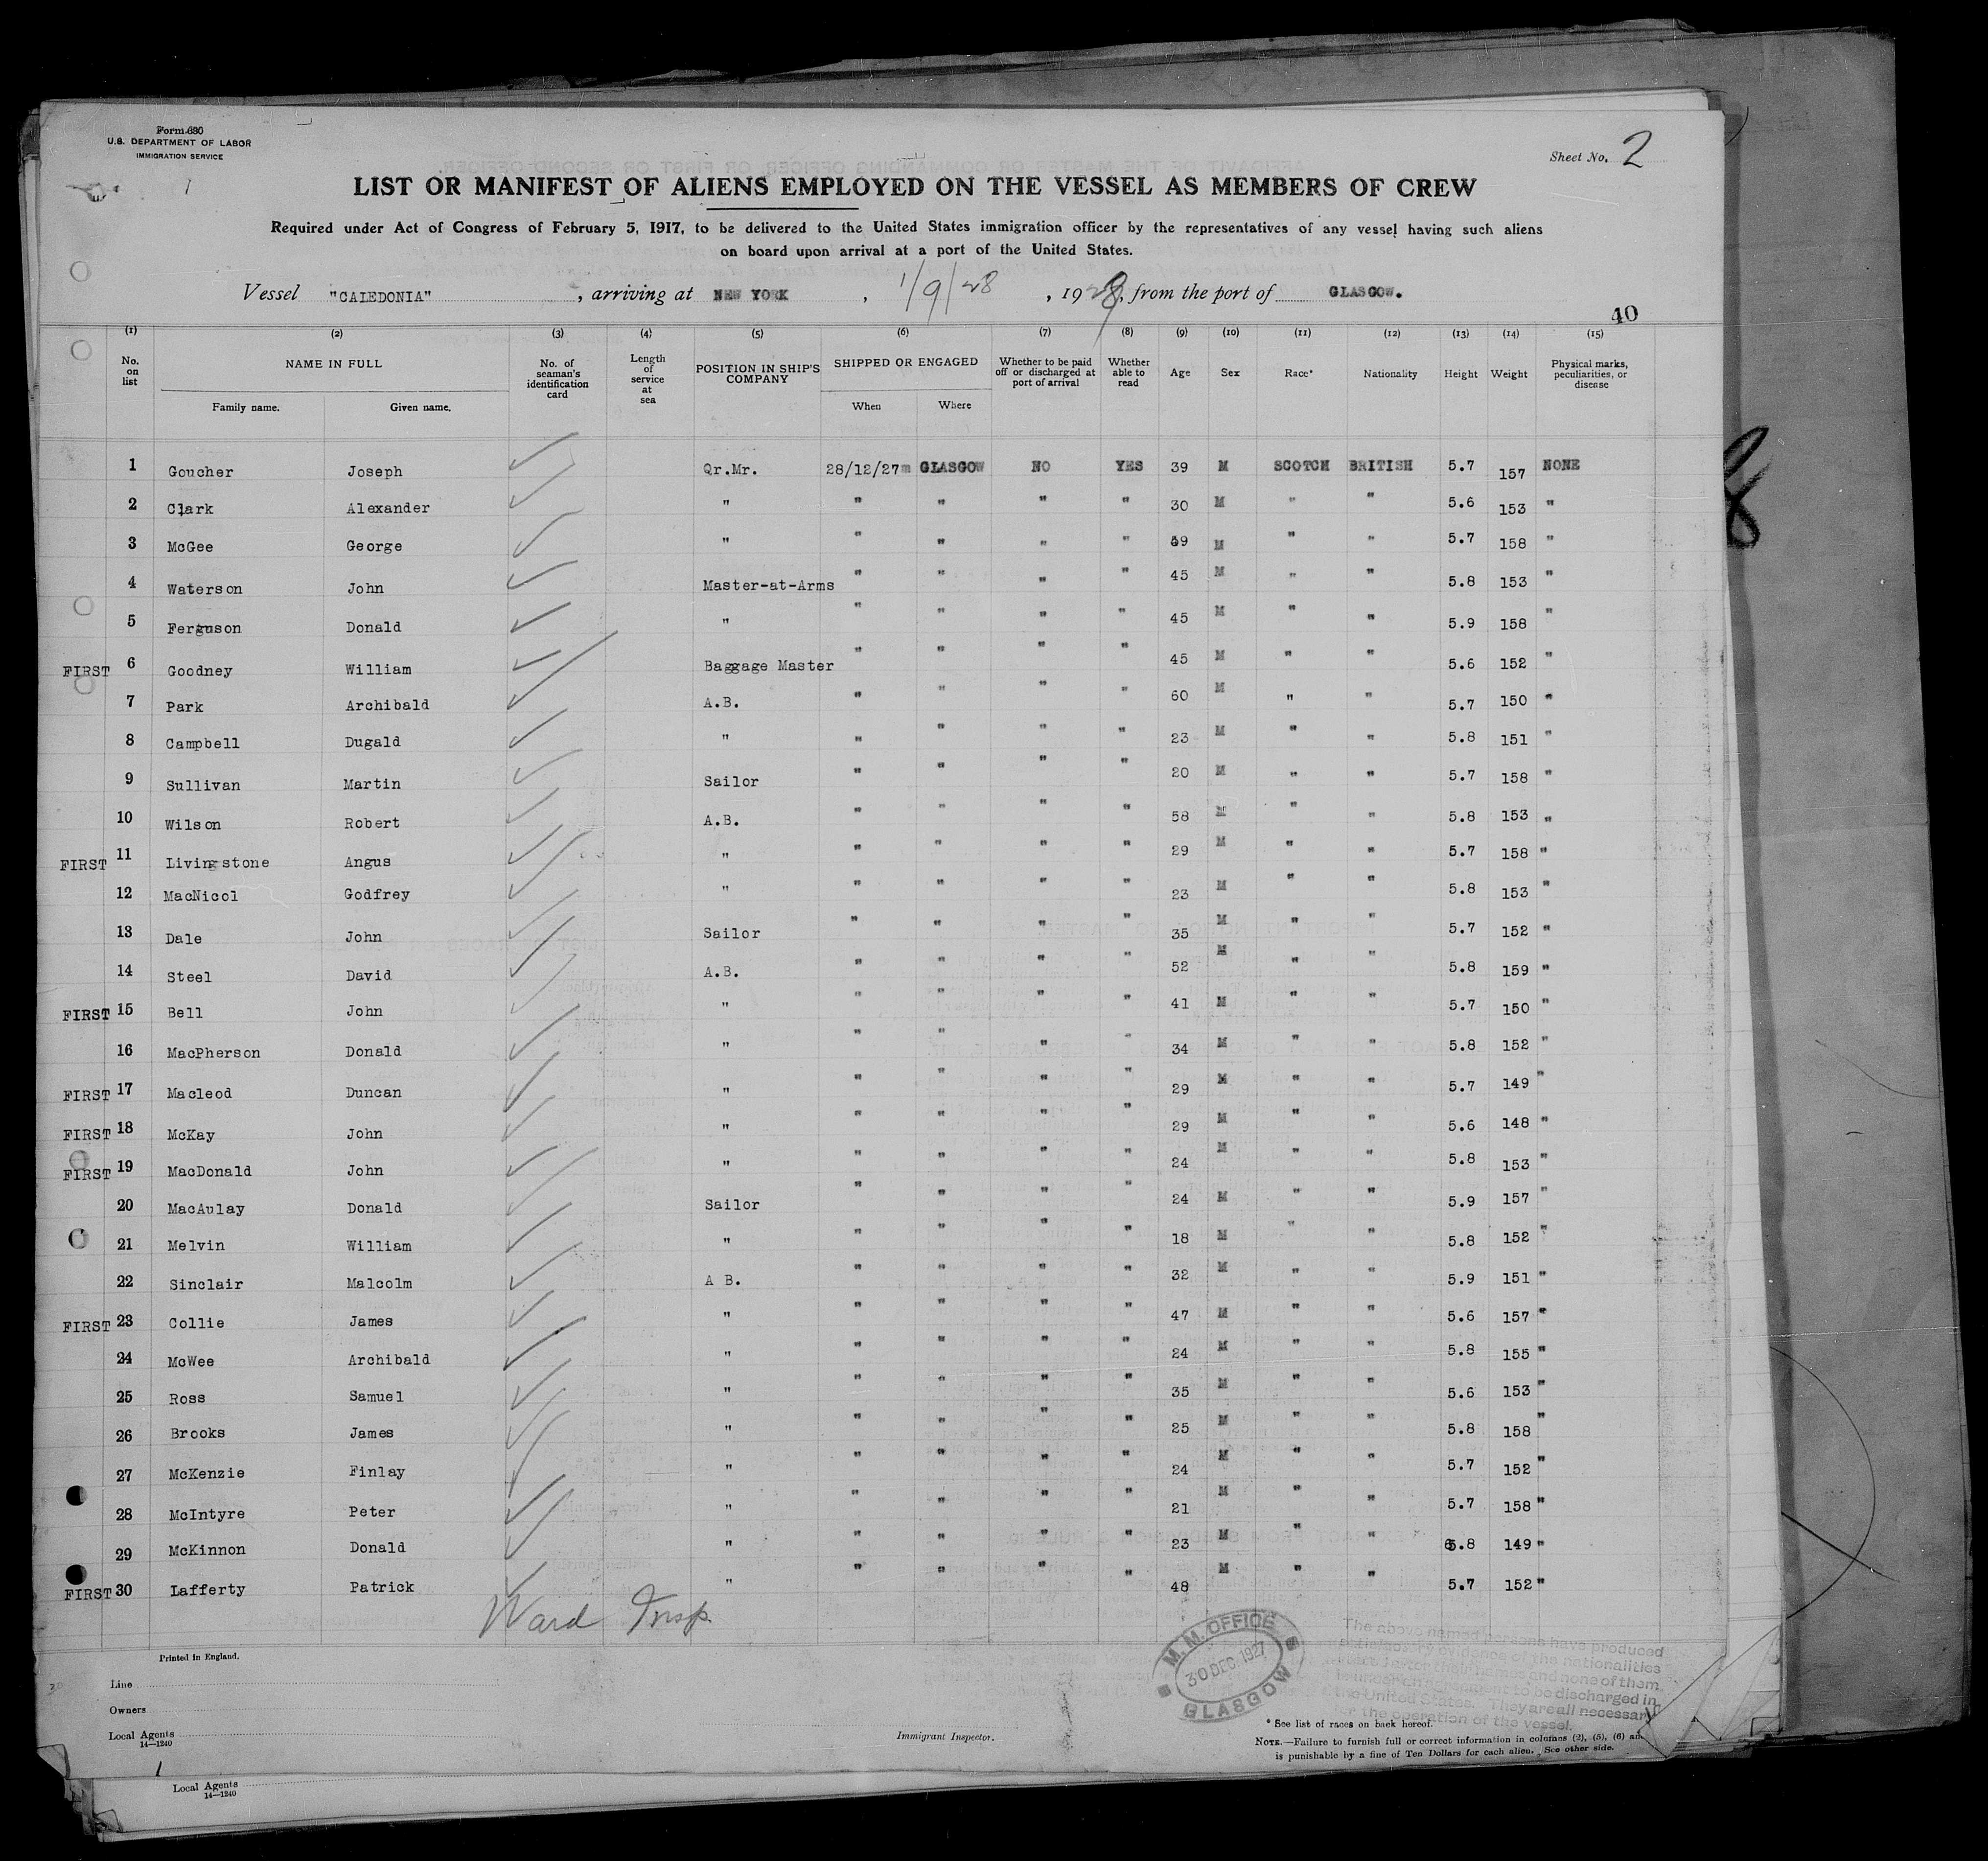 Form 630
U.S. DEPARTMENT OF LABOR
IMMIGRATION SERVICE
Sheet No. 2
LIST OR MANIFEST OF ALIENS EMPLOYED ON THE VESSEL AS MEMBERS OF CREW
Required under Act of Congress of February 5, 1917, to be delivered to the United States immigration officer by the representatives of any vessel having such aliens
on board upon arrival at a port of the United States.
Vessel "CALEDONIA", arriving at NEW YORK, 1/9/28, 1928, from the port of GLASGOW.
40
(1) (2) (3) (4) (5) (6) (7) (8) (9) (10) (11) (12) (13) (14) (15)
No. on list NAME IN FULL Family name. Given name. No. of seaman's identification card Length of service at sea POSITION IN SHIP'S COMPANY SHIPPED OR ENGAGED When Where Whether to be paid off or discharged at port of arrival Whether able to read Age Sex Race* Nationality Height Weight Physical marks, peculiarities, or disease
1 Goucher Joseph Qr.Mr. 28/12/27 GLASGOW NO YES 39 M SCOTCH BRITISH 5.7 157 NONE
2 Clark Alexander " " " " " 30 M " " 5.6 153 "
3 McGee George " " " " " 49 M " " 5.7 158 "
4 Waterson John Master-at-Arms " " " " 45 M " " 5.8 153 "
5 Ferguson Donald " " " " " 45 M " " 5.9 158 "
FIRST 6 Goodney William Baggage Master " " " " 45 M " " 5.6 152 "
7 Park Archibald A.B. " " " " 60 M " " 5.7 150 "
8 Campbell Dugald " " " " " 23 M " " 5.8 151 "
9 Sullivan Martin Sailor " " " " 20 M " " 5.7 158 "
10 Wilson Robert A.B. " " " " 58 M " " 5.8 153 "
FIRST 11 Livingstone Angus " " " " " 29 M " " 5.7 158 "
12 MacNicol Godfrey " " " " " 23 M " " 5.8 153 "
13 Dale John Sailor " " " " 35 M " " 5.7 152 "
14 Steel David A.B. " " " " 52 M " " 5.8 159 "
FIRST 15 Bell John " " " " " 41 M " " 5.7 150 "
16 MacPherson Donald " " " " " 34 M " " 5.8 152 "
FIRST 17 Macleod Duncan " " " " " 29 M " " 5.7 149 "
FIRST 18 McKay John " " " " " 29 M " " 5.6 148 "
FIRST 19 MacDonald John " " " " " 24 M " " 5.8 153 "
20 MacAulay Donald Sailor " " " " 24 M " " 5.9 157 "
21 Melvin William " " " " " 18 M " " 5.8 152 "
22 Sinclair Malcolm A B. " " " " 32 M " " 5.9 151 "
FIRST 23 Collie James " " " " " 47 M " " 5.6 157 "
24 McWee Archibald " " " " " 24 M " " 5.8 155 "
25 Ross Samuel " " " " " 35 M " " 5.6 153 "
26 Brooks James " " " " " 25 M " " 5.8 158 "
27 McKenzie Finlay " " " " " 24 M " " 5.7 152 "
28 McIntyre Peter " " " " " 21 M " " 5.7 158 "
29 McKinnon Donald " " " " " 23 M " " 5.8 149 "
FIRST 30 Lafferty Patrick " " " " " 48 M " " 5.7 152 "
Ward Insp.
M.M. OFFICE
30 DEC 1927
GLASGOW
The above named persons have produced
evidence of the nationalities
and none of them
to be discharged in
the United States. They are all necessary
for the operation of the vessel.
Printed in England.
Line
Owners
Local Agents
14—1240
Immigrant Inspector.
* See list of races on back hereof.
NOTE.—Failure to furnish full or correct information in columns (2), (5), (6) an
is punishable by a fine of Ten Dollars for each alien. See other side.
1
Local Agents
14—1240